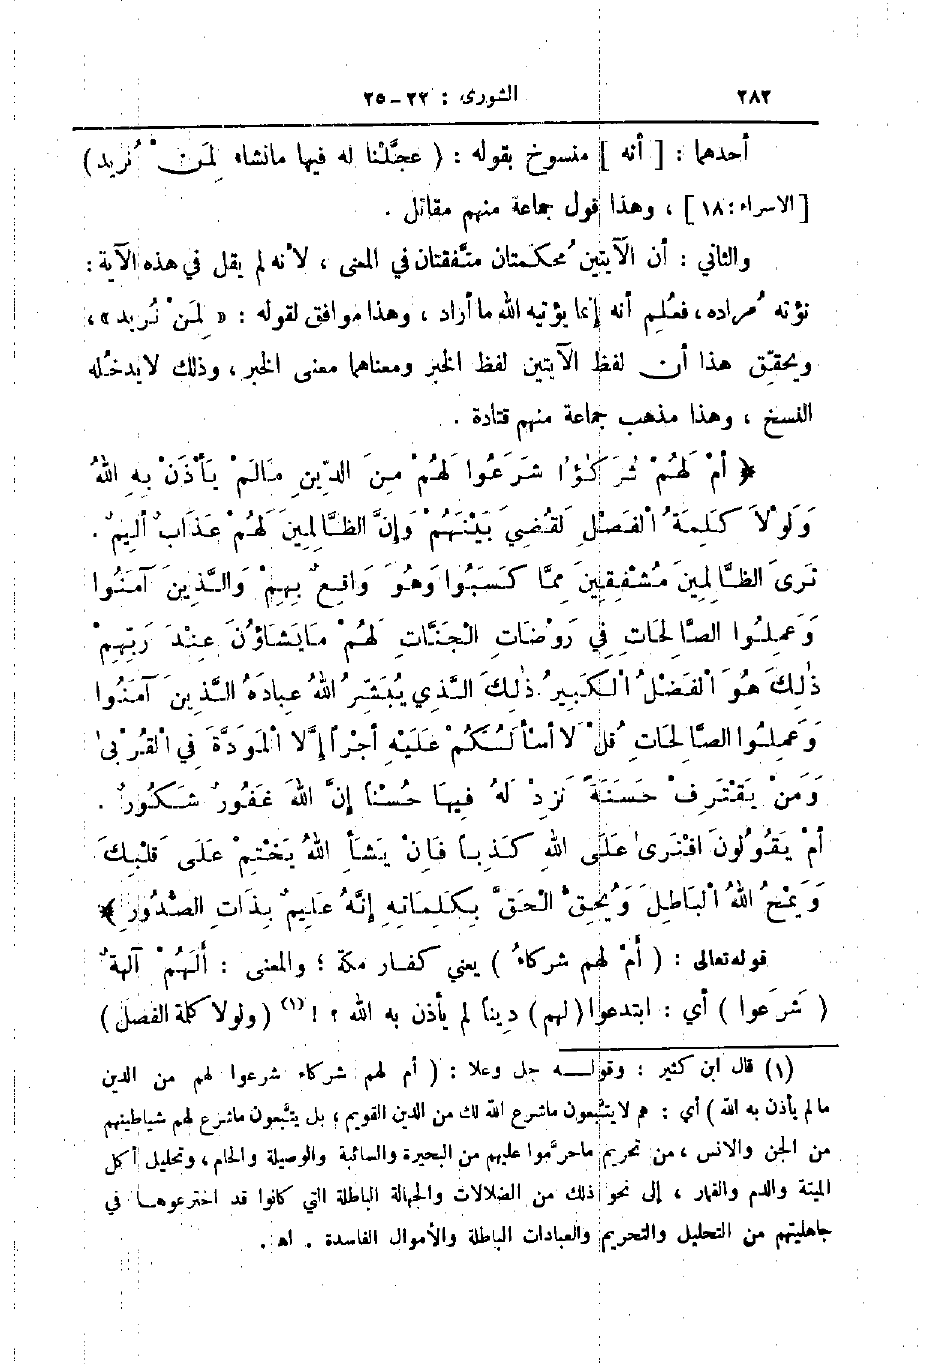 ٢٨٢ الشورى : ٢٢ – ٢٥
أحدهما : [ أنه ] منسوخ بقوله : ( عجَّلْنا له فيها مانشاء لِمَنْ نُريد )
[ الاسراء : ١٨ ] ، وهذا قول جماعة منهم مقاتل .
والثاني : أن الآيتين مُحكمتان متَّفقتان في المعنى ، لأنه لم يقل في هذه الآية :
نؤته مُراده ، فعُلِم أنه إنما يؤتيه الله ما أراد ، وهذا موافق لقوله : « لِمَنْ نُريد » ،
ويحقِّق هذا أن لفظ الآيتين لفظ الخبر ومعناهما معنى الخبر ، وذلك لا يدخُله
النسخ ، وهذا مذهب جماعة منهم قتادة .
﴿ أَمْ لَهُمْ شُرَكَٰؤُا شَرَعُوا لَهُمْ مِنَ الدِّينِ مَالَمْ يَأْذَنْ بِهِ اللهُ
وَلَوْلاَ كَلِمَةُ الْفَصْلِ لَقُضِيَ بَيْنَهُمْ وَإِنَّ الظَّالِمِينَ لَهُمْ عَذَابٌ أَلِيمٌ .
تَرَى الظَّالِمِينَ مُشْفِقِينَ مِمَّا كَسَبُوا وَهُوَ وَاقِعٌ بِهِمْ وَالَّذِينَ آمَنُوا
وَعَمِلُوا الصَّالِحَاتِ فِي رَوْضَاتِ الْجَنَّاتِ لَهُمْ مَايَشَاؤُنَ عِنْدَ رَبِّهِمْ
ذٰلِكَ هُوَ الْفَضْلُ الْكَبِيرُ ذٰلِكَ الَّذِي يُبَشِّرُ اللهُ عِبَادَهُ الَّذِينَ آمَنُوا
وَعَمِلُوا الصَّالِحَاتِ قُلْ لَا أَسْأَلُكُمْ عَلَيْهِ أَجْراً إِلَّا الْمَوَدَّةَ فِي الْقُرْبىٰ
وَمَنْ يَقْتَرِفْ حَسَنَةً نَزِدْ لَهُ فِيهَا حُسْناً إِنَّ اللهَ غَفُورٌ شَكُورٌ .
أَمْ يَقُولُونَ افْتَرىٰ عَلَى اللهِ كَذِباً فَاِنْ يَشَأِ اللهُ يَخْتِمْ عَلَى قَلْبِكَ
وَيَمْحُ اللهُ الْبَاطِلَ وَيُحِقُّ الْحَقَّ بِكَلِمَاتِهِ إِنَّهُ عَلِيمٌ بِذَاتِ الصُّدُورِ ﴾
قوله تعالى : ( أَمْ لهم شركاءُ ) يعني كفار مكة ؛ والمعنى : أَلَهُمْ آلهةٌ
( شَرَعوا ) أي : ابتدعوا ( لهم ) دِيناً لم يأذن به الله ؟ ! (١) ( ولولا كلمة الفصل )
(١) قال ابن كثير : وقوله جل وعلا : ( أم لهم شركاء شرعوا لهم من الدين
ما لم يأذن به الله ) أي : هم لا يتَّبعون ماشرع الله لك من الدين القويم ، بل يتَّبعون ماشرع لهم شياطينهم
من الجن والانس ، من تحريم ماحرَّموا عليهم من البحيرة والسائبة والوصيلة والحام ، وتحليل أكل
الميتة والدم والقمار ، إلى نحو ذلك من الضلالات والجهالة الباطلة التي كانوا قد اخترعوها في
جاهليتهم من التحليل والتحريم والعبادات الباطلة والأموال الفاسدة . اه .